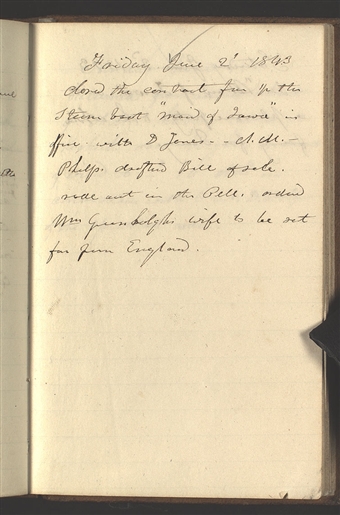 Friday June 2d 1843
closed the contract for the
Steam boat "Maid of Iowa" in
office with D Jones - A.M. -
Phelps drafted Bill of sale.
rode out in the P.M. ordered
Wm wife to be set
for from England.